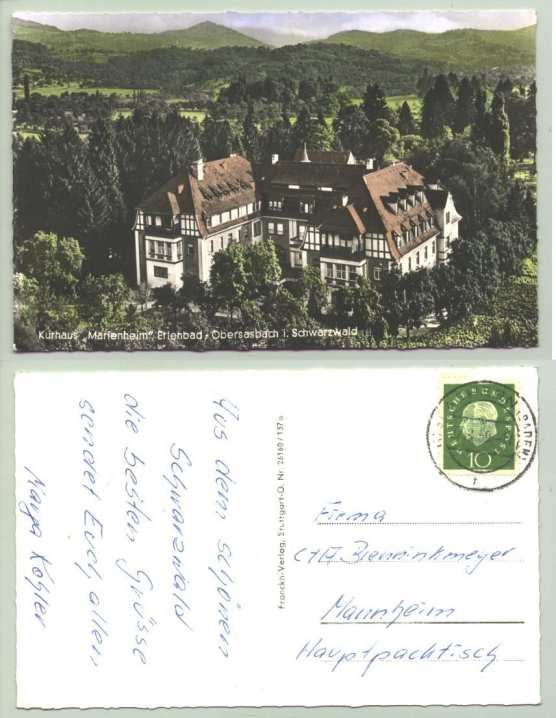 Kurhaus „Marienheim“, Erlenbad - Obersasbach i. Schwarzwald
Aus dem schönen
Schwarzwald
die besten Grüsse
sendet Euch allen
Kohler
Franckh-Verlag, Stuttgart-O. Nr. 26160/157a
DEUTSCHE BUNDESPOST
10
(BADEN)
Firma
C & A Brenninkmeyer
Mannheim
Hauptpacktisch